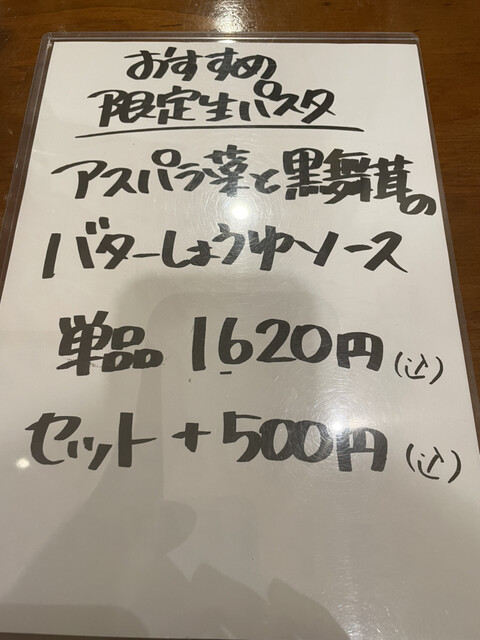 おすすめ
限定生パスタ
アスパラ菜と黒舞茸の
バターしょうゆソース
単品 1620円(込)
セット + 500円(込)